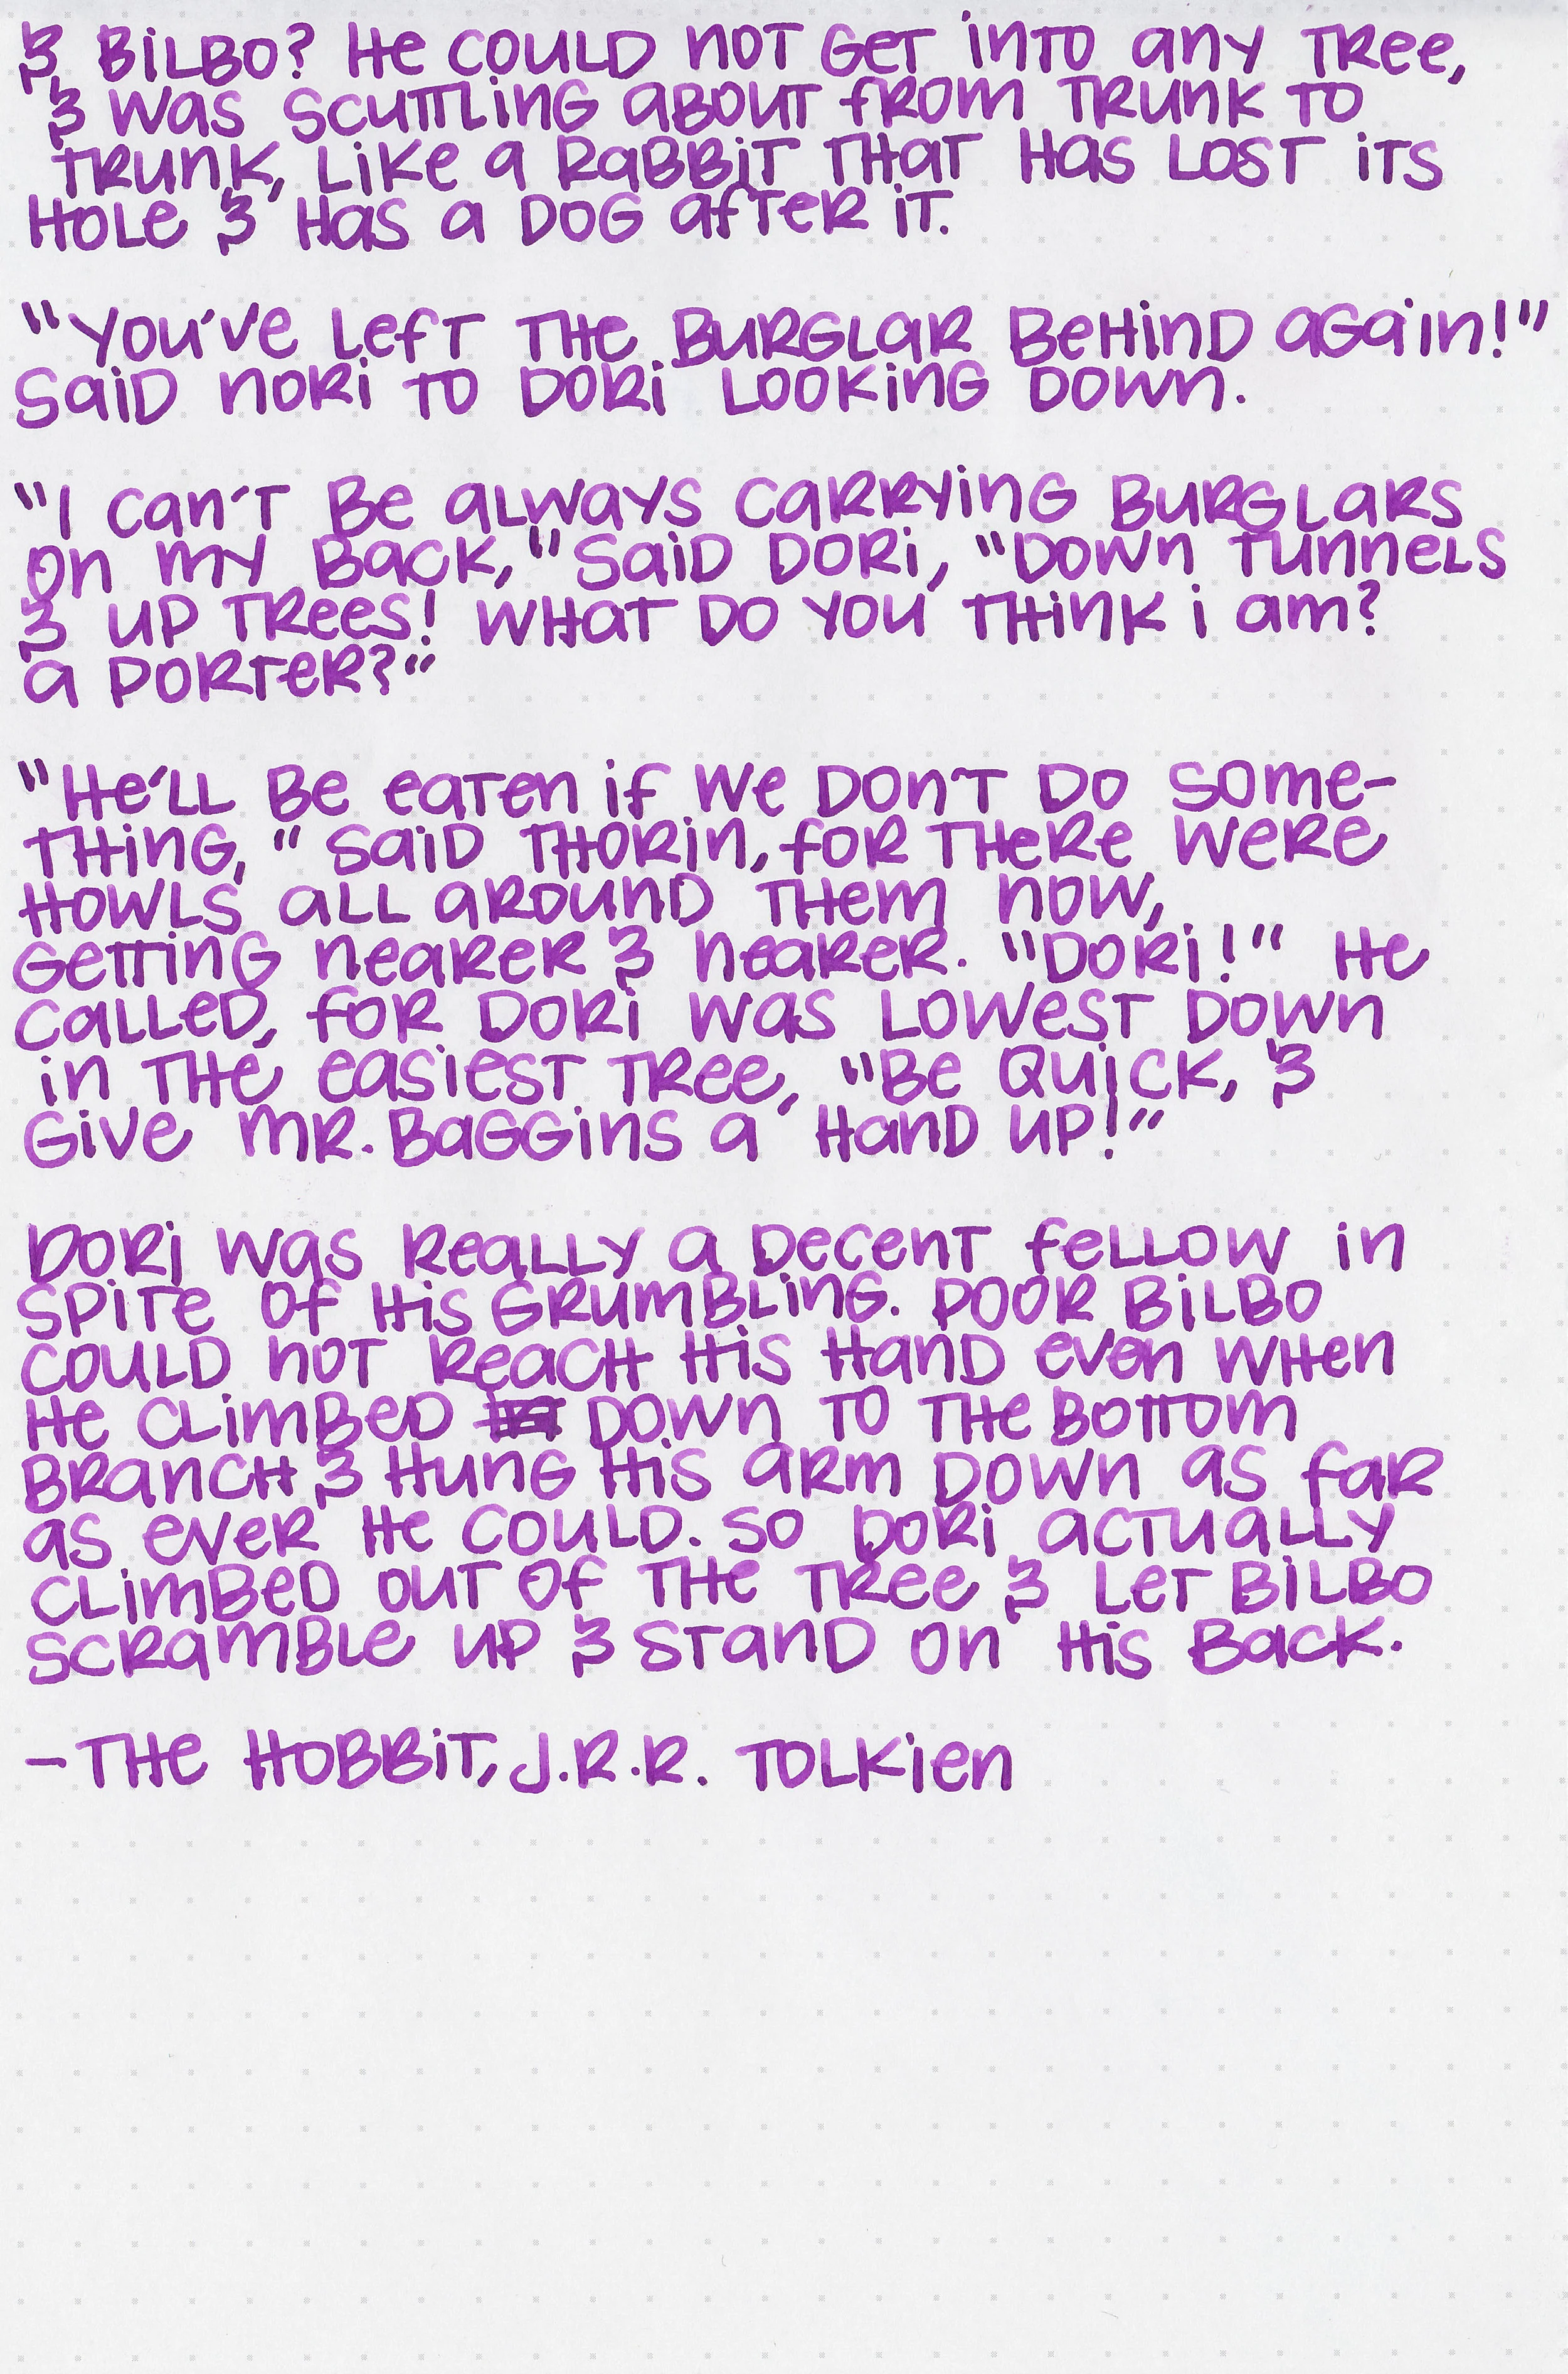 & Bilbo? He could not get into any tree,
& was scuttling about from trunk to
trunk, like a rabbit that has lost its
hole & has a dog after it.
"You've left the burglar behind again!"
said Nori to Dori looking down.
"I can't be always carrying burglars
on my back," said Dori, "down tunnels
& up trees! What do you think I am?
a porter?"
"He'll be eaten if we don't do some-
thing," said Thorin, for there were
howls all around them now,
getting nearer & nearer. "Dori!" He
called, for Dori was lowest down
in the easiest tree, "Be quick, &
give Mr. Baggins a hand up!"
Dori was really a decent fellow in
spite of his grumbling. Poor Bilbo
could not reach his hand even when
he climbed down to the bottom
branch & hung his arm down as far
as ever he could. So Dori actually
climbed out of the tree & let Bilbo
scramble up & stand on his back.
- The Hobbit, J.R.R. Tolkien